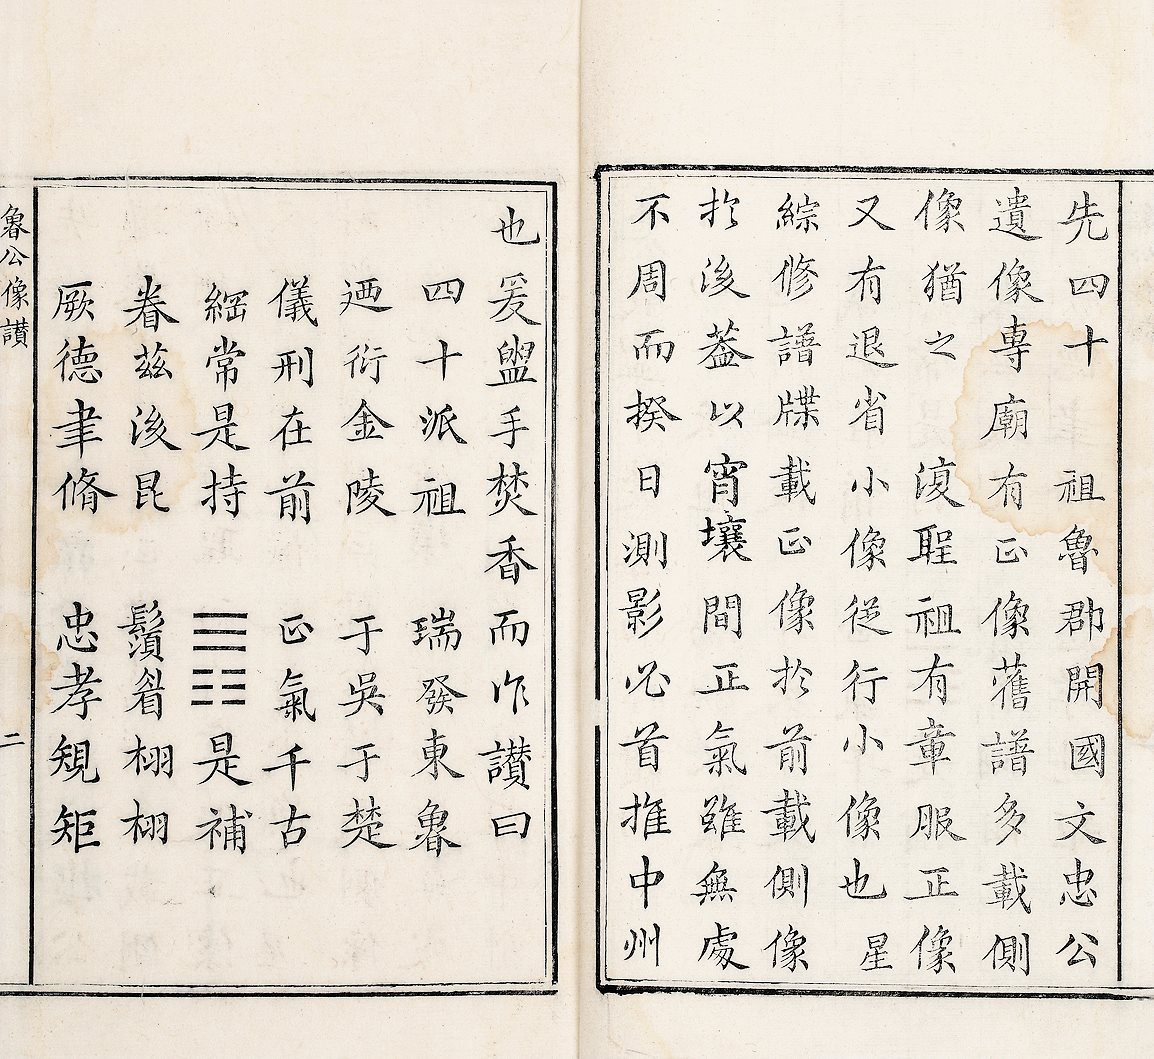 先四十 祖魯郡開國文忠公
遺像專廟有正像舊譜多載側
像猶之 復聖祖有章服正像
又有退省小像從行小像也 星
綜修譜牒載正像扵前載側像
扵後葢以宵壤間正氣雖無處
不周而揆日測影必首推中州
也爰盥手焚香而作讃曰
四十派祖 瑞發東魯
迺衍金陵 于吳于楚
儀刑在前 正氣千古
綱常是持 ☰☷是補
眷茲後昆 鬚睂栩栩
厥德聿脩 忠孝䂓矩
魯公像讃 二